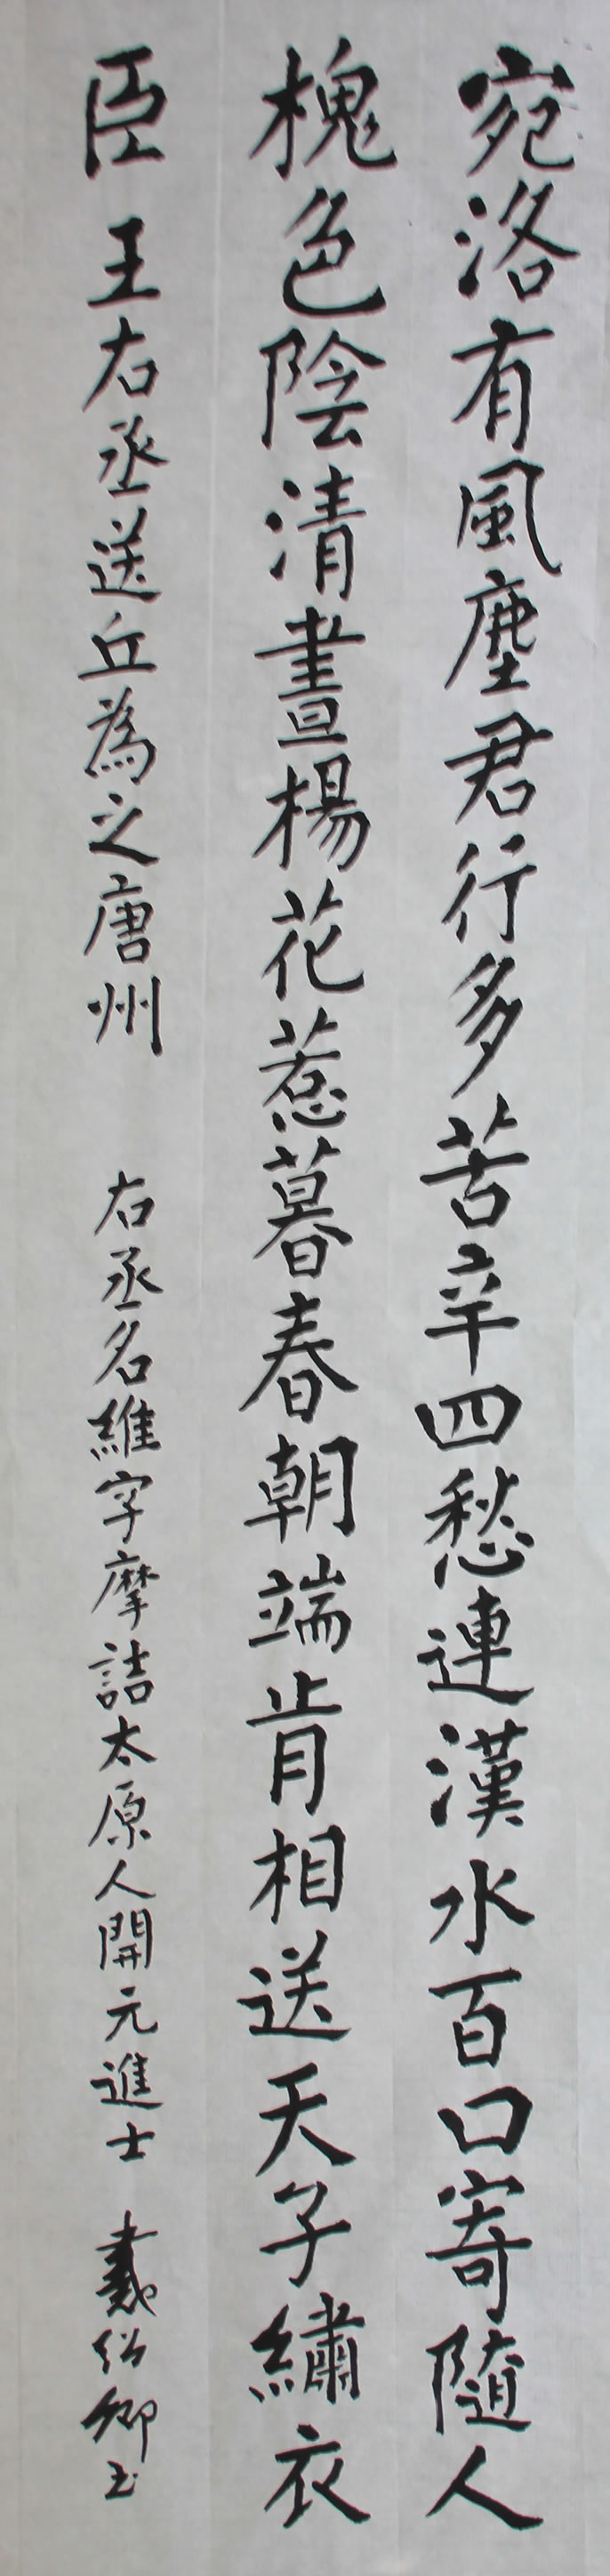 宛洛有風塵君行多苦辛四愁連漢水百口寄隨人
槐色陰清晝楊花惹暮春朝端肯相送天子繡衣
臣 王右丞送丘為之唐州 右丞名維字摩詰太原人開元進士 戴